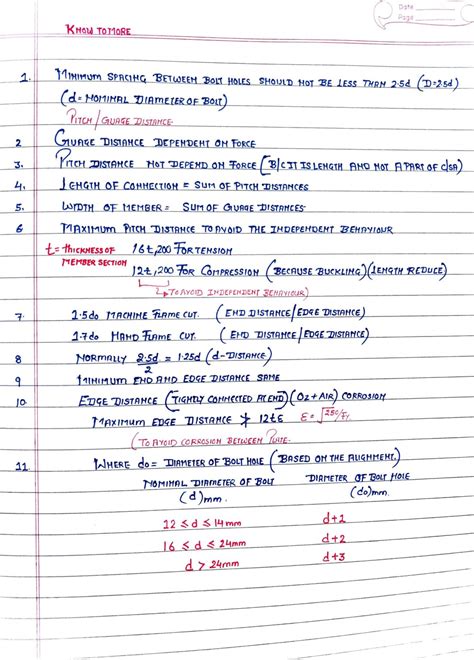 Date
Page
KNOW TO MORE
1. MINIMUM SPACING BETWEEN BOLT HOLES SHOULD NOT BE LESS THAN 2.5d (D=2.5d)
(d= NOMINAL DIAMETER OF BOLT)
PITCH / GUAGE DISTANCE.
2 GUAGE DISTANCE DEPENDENT ON FORCE
3. PITCH DISTANCE NOT DEPEND ON FORCE (B/C IT IS LENGTH AND NOT A PART OF C/SA)
4. LENGTH OF CONNECTION = SUM OF PITCH DISTANCES
5. WIDTH OF MEMBER = SUM OF GUAGE DISTANCES
6 MAXIMUM PITCH DISTANCE TO AVOID THE INDEPENDENT BEHAVIOUR
t = THICKNESS OF MEMBER SECTION
16t, 200 FOR TENSION
12t, 200 FOR COMPRESSION (BECAUSE BUCKLING) (LENGTH REDUCE)
↳ TO AVOID INDEPENDENT BEHAVIOUR)
7 1.5do MACHINE FLAME CUT. (END DISTANCE/EDGE DISTANCE)
1.7do HAND FLAME CUT. (END DISTANCE/EDGE DISTANCE)
8 NORMALLY 2.5d/2 = 1.25d (d-DISTANCE)
9 MINIMUM END AND EDGE DISTANCE SAME
10 EDGE DISTANCE (TIGHTLY CONNECTED AT END) (O2 + AIR) CORROSION
MAXIMUM EDGE DISTANCE ≯ 12tε ε = √250/Fy
(TO AVOID CORROSION BETWEEN PLATE.
11 WHERE do = DIAMETER OF BOLT HOLE (BASED ON THE ALIGNMENT.)
NOMINAL DIAMETER OF BOLT DIAMETER OF BOLT HOLE
(d)mm. (do)mm.
12 ≤ d ≤ 14mm d+1
16 ≤ d ≤ 24mm d+2
d > 24mm d+3